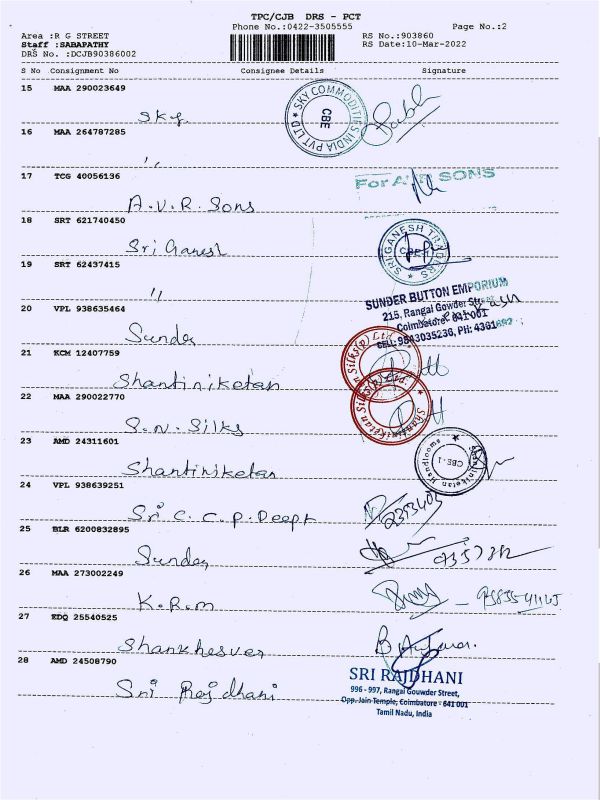 TPC/CJB DRS - PCT
Phone No.:0422-3505555 Page No.:2
Area :R G STREET RS No.:903860
Staff :SABAPATHY RS Date:10-Mar-2022
DRS No. :DCJB90386002
S No Consignment No Consignee Details Signature
15 MAA 290023649
Sky
SKY COMMODITIES INDIA PVT LTD
CBE
16 MAA 264787285
,,
17 TCG 40056136
For A.V.R SONS
A.V.R. Sons
18 SRT 621740450
Sri Ganesh
SRI GANESH TRADERS
CBE
19 SRT 62437415
,,
SUNDER BUTTON EMPORIUM
215, Rangai Gowder Street
Coimbatore - 641 001
CELL: 9843035236, PH: 4381692
20 VPL 938635464
Sunder
21 KCM 12407759
Shantiniketan
Silks(p) Ltd.
22 MAA 290022770
S.N. Silks
Shantiniketan Silks(p) Ltd.
23 AMD 24311601
Shantiniketan
Shantiniketan Handlooms
CBE-1
24 VPL 938639251
Sri C.C.P. Deepk
25 BLR 6200832895
Sunder
26 MAA 273002249
K.R.M
27 EDQ 25540525
Shankhesver
28 AMD 24508790
Sri Rajdhani
SRI RAJDHANI
996 - 997, Rangai Gouwder Street,
Opp. Jain Temple, Coimbatore - 641 001
Tamil Nadu, India